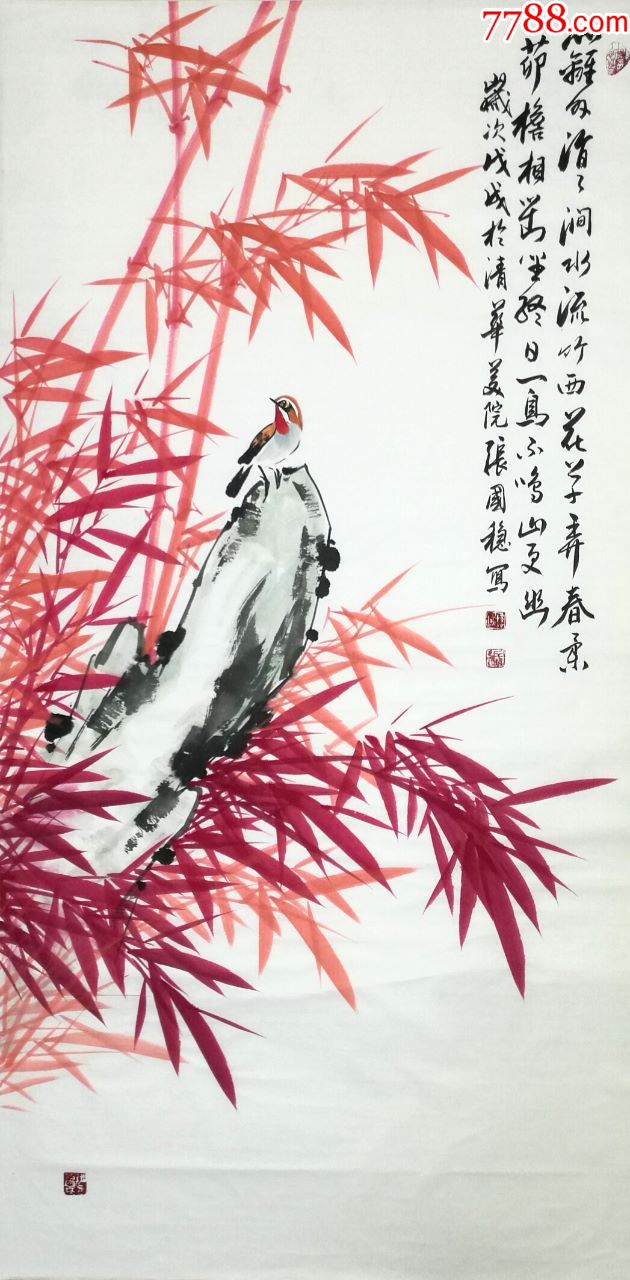 7788.com
澗水流竹西花草弄春柔
茆檐相對坐終日一鳥不鳴山更幽
歲次戊戌於清華美院張國穩寫